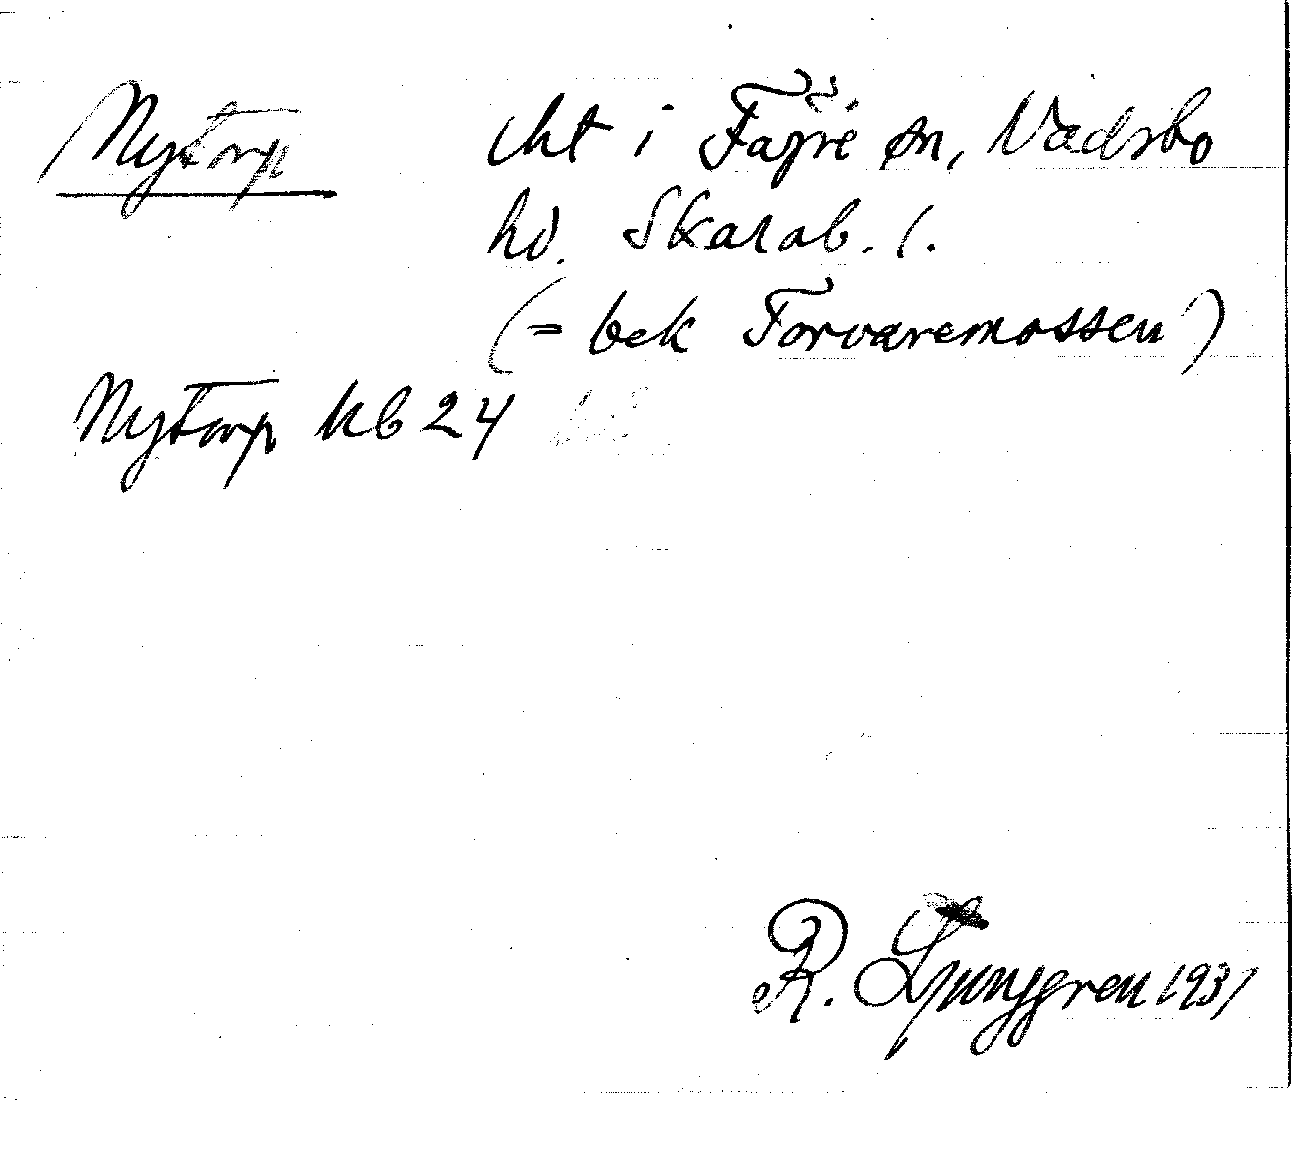 Nytorp      lht i Fägre sn, Vadsbo
hd. Skarab. l.
(= bek Forvaremossen)
Nytorp kb 24
R. Ljunggren 1931